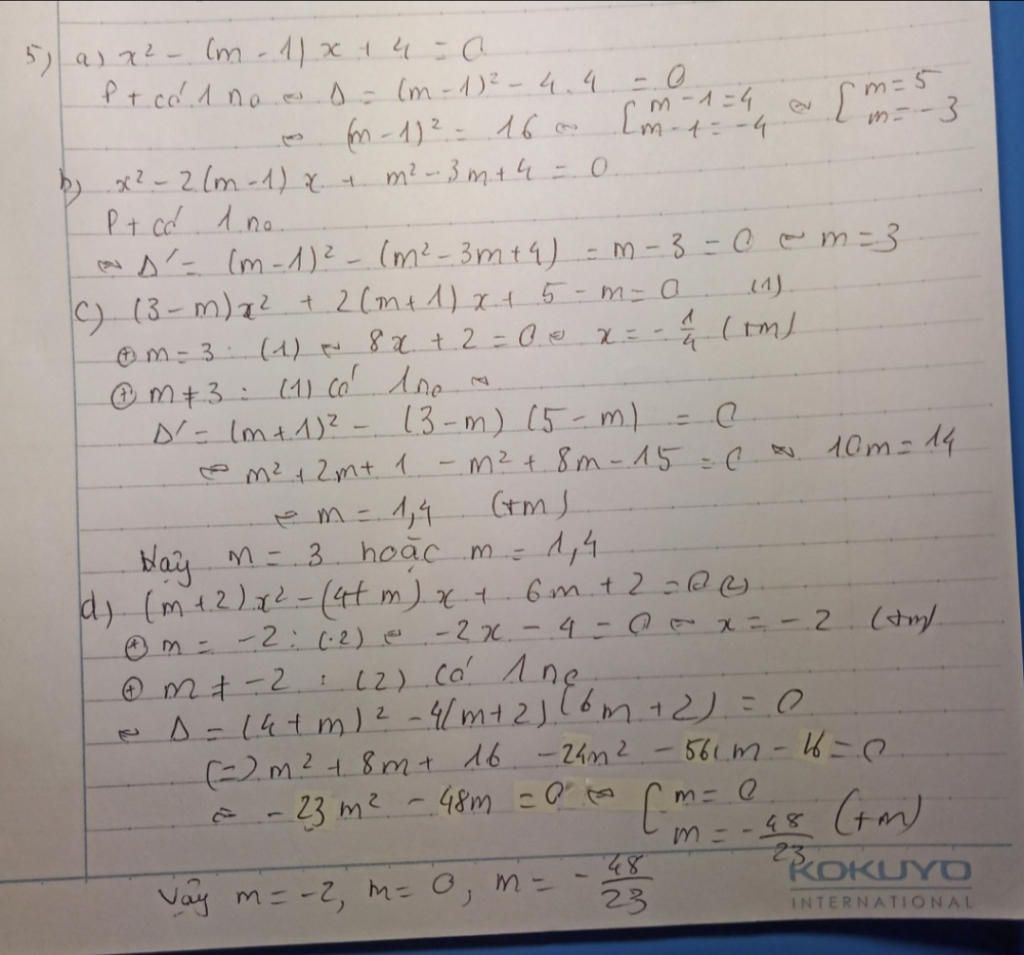 5) a) x² - (m - 1) x + 4 = 0
P + có 1 no ⇔ Δ = (m - 1)² - 4.4 = 0
⇔ (m - 1)² = 16 ⇔ [ m - 1 = 4 m - 1 = -4 ⇔ [ m = 5 m = -3
b) x² - 2(m - 1) x + m² - 3m + 4 = 0
P + có 1 no
⇔ Δ' = (m - 1)² - (m² - 3m + 4) = m - 3 = 0 ⇔ m = 3
c) (3 - m)x² + 2(m + 1) x + 5 - m = 0 (1)
⊕ m = 3 : (1) ⇔ 8x + 2 = 0 ⇔ x = - 1/4 (+m)
⊕ m ≠ 3 : (1) có 1 no ⇔
Δ' = (m + 1)² - (3 - m) (5 - m) = 0
⇔ m² + 2m + 1 - m² + 8m - 15 = 0 ⇔ 10m = 14
⇔ m = 1,4 (+m)
Vậy m = 3 hoặc m = 1,4
d) (m + 2) x² - (4 + m) x + 6m + 2 = 0 (2)
⊕ m = -2 : (2) ⇔ -2x - 4 = 0 ⇔ x = -2 (+m)
⊕ m ≠ -2 : (2) có 1 no
⇔ Δ = (4 + m)² - 4(m + 2) (6m + 2) = 0
(=) m² + 8m + 16 - 24m² - 56m - 16 = 0
⇔ - 23m² - 48m = 0 ⇔ [ m = 0 m = - 48/23 (+m)
Vậy m = -2, m = 0, m = - 48/23
KOKUYO
INTERNATIONAL